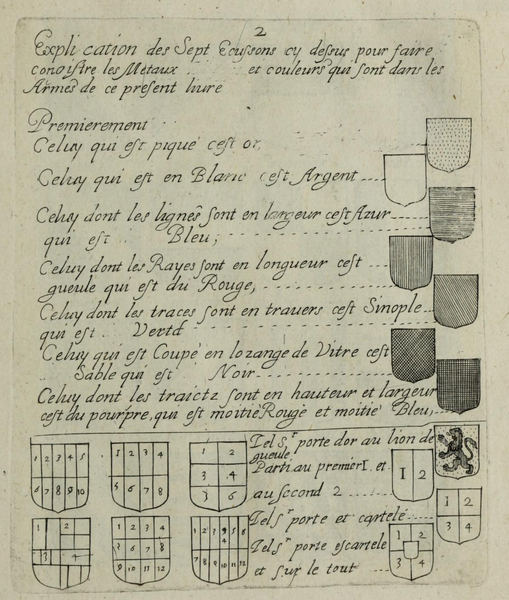 2
Explication des Sept Ecussons cy dessus pour faire
conoistre les Metaux et couleurs qui sont dans les
Armes de ce present liure
Premierement
Celuy qui est piqué cest or,
Celuy qui est en Blanc cest Argent
Celuy dont les lignes sont en largeur cest Azur
qui est Bleu,
Celuy dont les Rayes sont en longueur cest
gueule qui est du Rouge,
Celuy dont les traces sont en trauers cest Sinople
qui est Verta
Celuy qui est Coupé en lozange de Vitre cest
Sable qui est Noir
Celuy dont les traictz sont en hauteur et largeur
cest du pourpre, qui est moitie Rouge et moitié Bleu,
1 2 3 4 5
6 7 8 9 10
1 2 3 4
5 6 7 8
1 2
3 4
5 6
Tel sr porte dor au lion de
gueule
Parti au premier 1. et
au second 2
1 2
1 2
3 4
1 2
3 4
1 2 3 4
5 6 7 8
9 10 11 12
Tel sr porte et cartelé
Tel sr porte escartele
et sur le tout
1 2
3 4